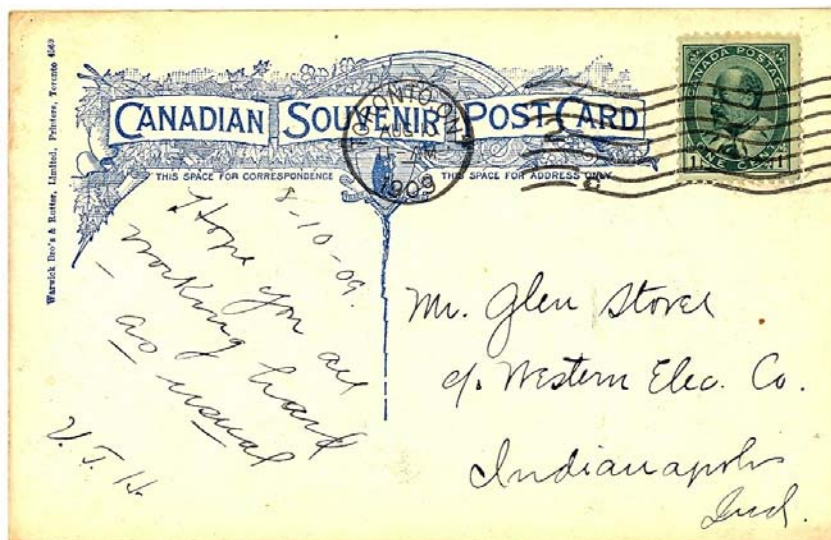 Warwick Bro's & Rutter, Limited, Printers, Toronto
CANADIAN SOUVENIR POST CARD
THIS SPACE FOR CORRESPONDENCE
THIS SPACE FOR ADDRESS ONLY
TORONTO, ONT
AUG
1909
CANADA POSTAGE
1 ONE CENT 1
8-10-09.
Hope you are
working hard
as usual
V. T. H.
Mr. Glen Stover
c/o Western Elec. Co.
Indianapolis
Ind.